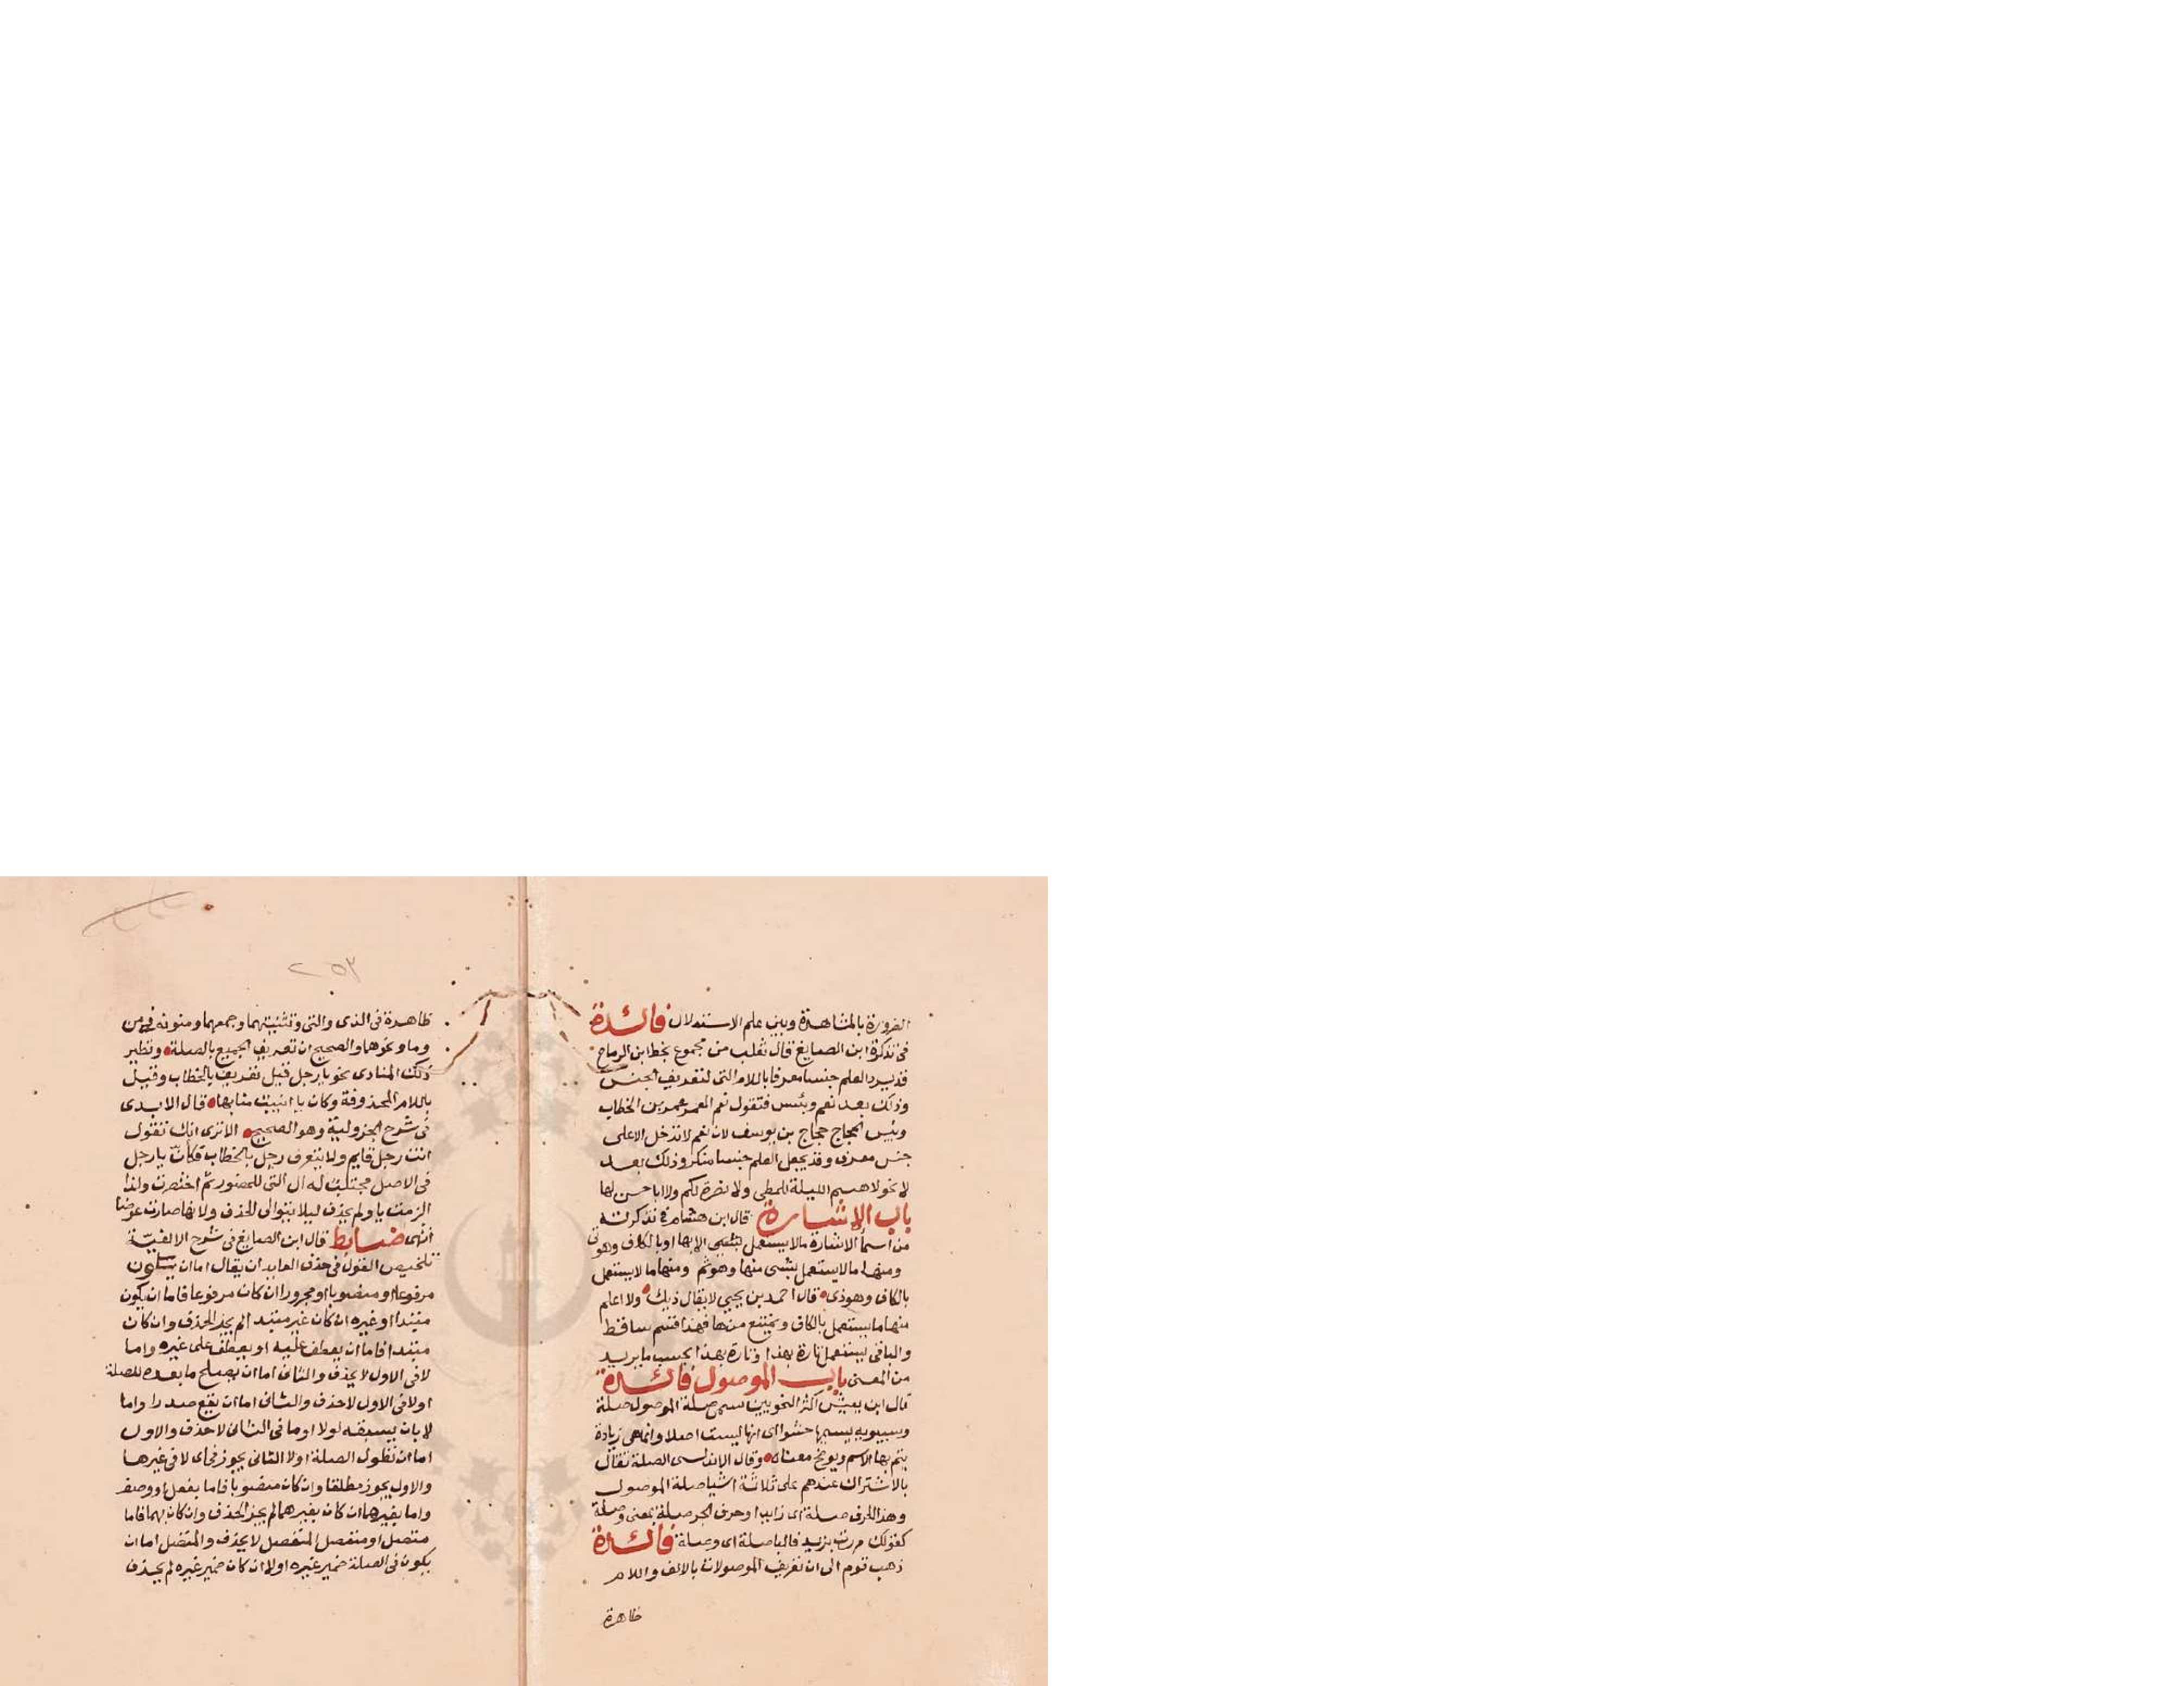 الضرورة بالمشاهدة وبين علم الاستدلال فائدة
فى تذكرة ابن الصايغ قال ثعلب من مجموع بخط ابن الرماح
قد يرد العلم جنسا معرفا باللام التى لتعريف الجنس
وذلك بعد نعم وبئس فتقول نعم العمر عمر بن الخطاب
وبئس الحجاج حجاج بن يوسف لان نعم لا تدخل الا على
جنس معرف وقد يجعل العلم جنسا منكر وذلك بعد
لا نحو لا هيثم الليلة للمطى ولا بصرة لكم ولا ابا حسن لها
باب الاشارة قال ابن هشام فى تذكرته
من اسما الاشارة مالا يستعمل الا بها او بالكاف وهو تى
ومنها مالا يستعمل بشى منها وهو ثم ومنها ما لا يستعمل
بالكاف وهو ذى قال احمد بن يحيى لا يقال ذيك ولا اعلم
منها ما يستعمل بالكاف ويمتنع من ها فهذا قسم ساقط
والباقى يستعمل تارة بهذا وتارة بهذا بحسب ما يريد
من المعنى باب الموصول فائدة
قال ابن يعيش اكثر النحويين سمى صلة الموصول صلة
وسيبويه يسميها حشوا اى انها ليست اصلا وانما هى زيادة
يتم بها الاسم ويوضح معناه وقال الاندلسى الصلة تقال
بالاشتراك عندهم على ثلاثة اشيا صلة الموصول
وهذا الحرف صلة اى زايد او حرف الجر صلة بمعنى وصلة
كقولك مررت بزيد فالبا صلة اى وصلة فائدة
ذهب قوم الى ان تعريف الموصولات بالالف واللام
ظاهرة
٢٥٣
ظاهرة فى الذى والتى وتثنيتهما وجمعهما ومنوية فى من
وما ونحوهما والصحيح ان تعريف الجميع بالصلة ونظير
ذلك المنادى نحو يا رجل قيل تعريف بالخطاب وقيل
باللام المحذوفة وكان يا انيبت منابها قال الابدى
فى شرح الجزولية وهو الصحيح الا ترى انك تقول
انت رجل قايم ولا يتعرف رجل بالخطاب فكأن يا رجل
فى الاصل مجتلب له ال التى للحضور ثم اختصرت ولذا
الزمت يا ولم يحذف ليلا يتوالى الحذف ولانها صارت عوضا
انتهى ضابط قال ابن الصايغ فى شرح الالفية
تلخيص القول فى حذف العايد ان يقال اما ان يكون
مرفوعا او منصوبا او مجرورا ان كان مرفوعا فاما ان يكون
مبتدا او غيره ان كان غير مبتدا لم يجز الحذف وان كان
مبتدا فاما ان يعطف عليه او يعطف على غيره واما
لا فى الاول لا يحذف والثانى اما ان يصلح ما بعده للصلة
اولا فى الاول لا حذف والثانى اما ان يقع صدرا واما
لا بان يسبقه لولا او ما فى الثانى لا حذف والاول
اما ان تطول الصلة اولا الثانى يجوز فى اى لا فى غيرها
والاول يجوز مطلقا وان كان منصوبا فاما بفعل او وصف
واما بغيرهما ان كان بغيرهما لم يجز الحذف وان كان بهما فاما
متصل او منفصل المنفصل لا يحذف والمتصل اما ان
يكون فى الصلة ضمير غيره اولا ان كان ضمير غيره لم يحذف